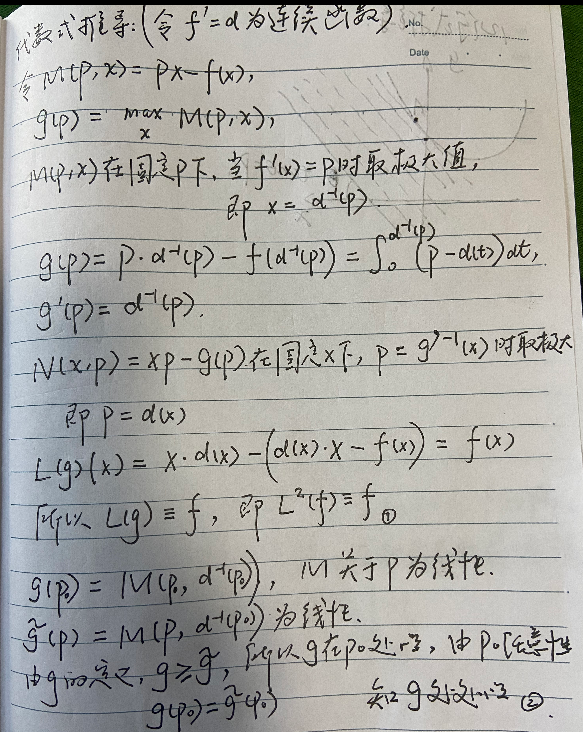 代数式推导:(令 f'=α 为连续函数)
No.
Date
令 M(p,x) = px-f(x),
g(p) = max_x M(p,x),
M(p,x) 在固定p下, 当 f'(x)=p 时取极大值,
即 x = α⁻¹(p).
g(p) = p·α⁻¹(p) - f(α⁻¹(p)) = ∫₀^{α⁻¹(p)} (p-α(t))dt,
g'(p) = α⁻¹(p).
N(x,p) = xp-g(p) 在固定x下, p = g'⁻¹(x) 时取极大
即 p = α(x)
L(g)(x) = x·α(x) - (α(x)·x - f(x)) = f(x)
所以 L(g) ≡ f, 即 L²(f) ≡ f ①
g(p₀) = M(p₀, α⁻¹(p₀)), M 关于 p 为线性.
g̃(p) = M(p, α⁻¹(p₀)) 为线性.
由g的定义, g ≥ g̃, 所以 g在p₀处, 由 p₀任意性
g(p₀) = g̃(p₀) 知 g 处处 ②.